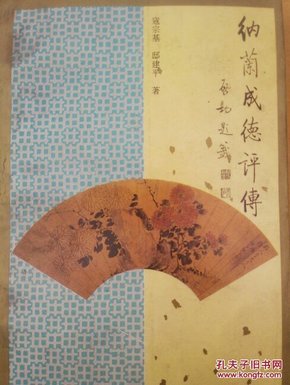 納蘭成德評傳
啓功題籤
寇宗基 邸建平 著
孔夫子旧书网
www.kongfz.com